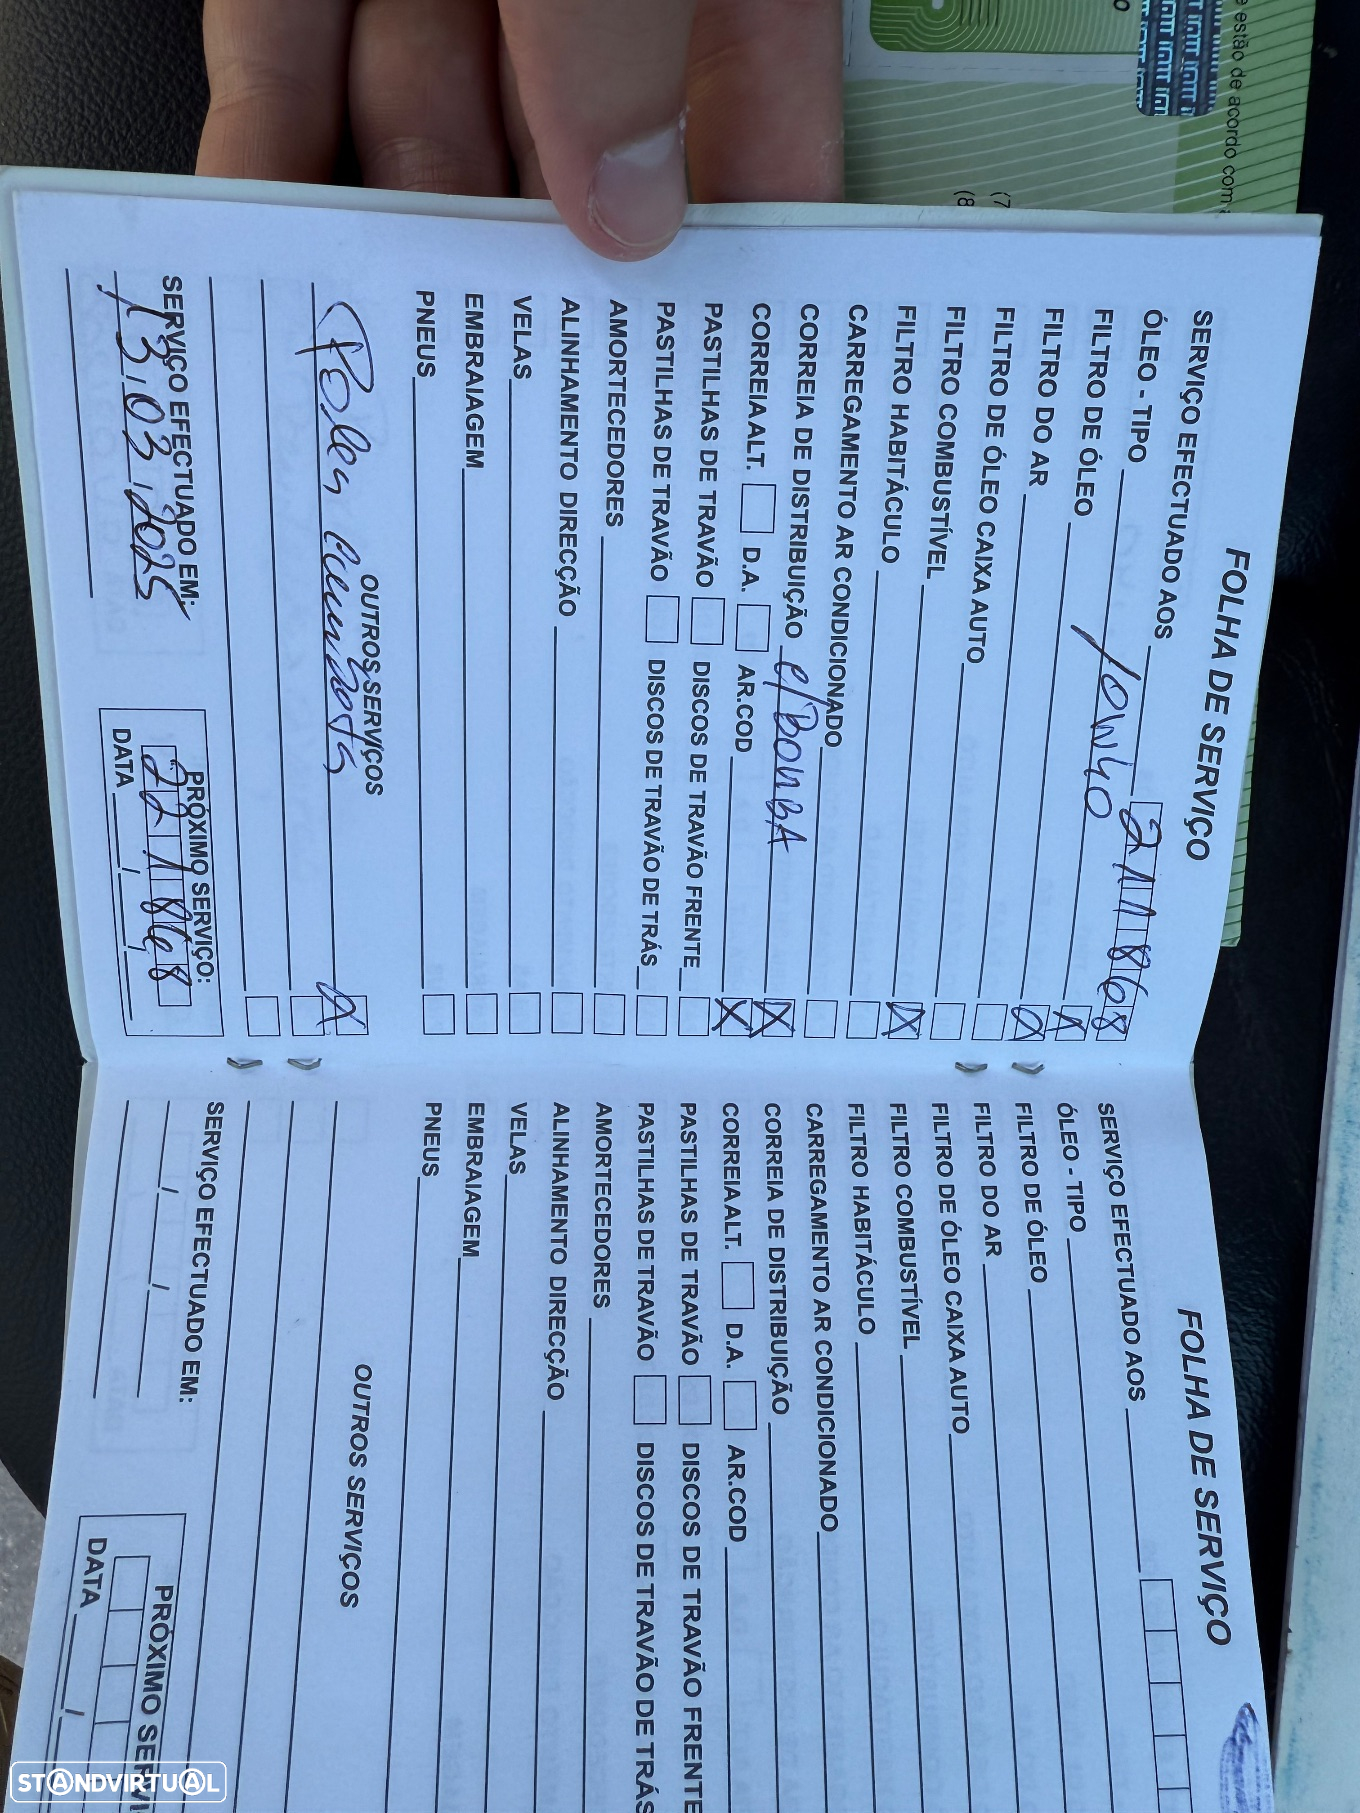 FOLHA DE SERVIÇO
SERVIÇO EFECTUADO AOS 211868
ÓLEO - TIPO 10W40 X
FILTRO DE ÓLEO X
FILTRO DO AR X
FILTRO DE ÓLEO CAIXA AUTO
FILTRO COMBUSTÍVEL
FILTRO HABITÁCULO X
CARREGAMENTO AR CONDICIONADO
CORREIA DE DISTRIBUIÇÃO c/BOMBA X
CORREIA ALT. D.A. AR.COD X
PASTILHAS DE TRAVÃO DISCOS DE TRAVÃO FRENTE
PASTILHAS DE TRAVÃO DISCOS DE TRAVÃO DE TRÁS
AMORTECEDORES
ALINHAMENTO DIRECÇÃO
VELAS
EMBRAIAGEM
PNEUS
OUTROS SERVIÇOS
X
SERVIÇO EFECTUADO EM:
13.03.2025
PRÓXIMO SERVIÇO:
221868
DATA / /
FOLHA DE SERVIÇO
SERVIÇO EFECTUADO AOS
ÓLEO - TIPO
FILTRO DE ÓLEO
FILTRO DO AR
FILTRO DE ÓLEO CAIXA AUTO
FILTRO COMBUSTÍVEL
FILTRO HABITÁCULO
CARREGAMENTO AR CONDICIONADO
CORREIA DE DISTRIBUIÇÃO
CORREIA ALT. D.A. AR.COD
PASTILHAS DE TRAVÃO DISCOS DE TRAVÃO FRENTE
PASTILHAS DE TRAVÃO DISCOS DE TRAVÃO DE TRÁS
AMORTECEDORES
ALINHAMENTO DIRECÇÃO
VELAS
EMBRAIAGEM
PNEUS
OUTROS SERVIÇOS
SERVIÇO EFECTUADO EM:
/ /
PRÓXIMO SERVI
DATA /
e estão de acordo com
(7
(8
STANDVIRTUAL